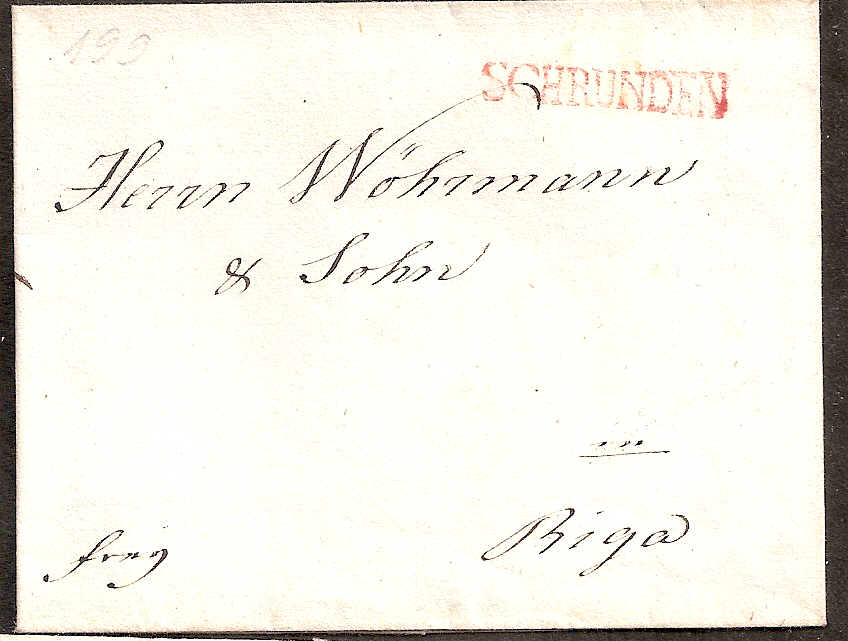 199
SCHRUNDEN
Herrn Wöhrmann
& Sohn
in
Riga
frey